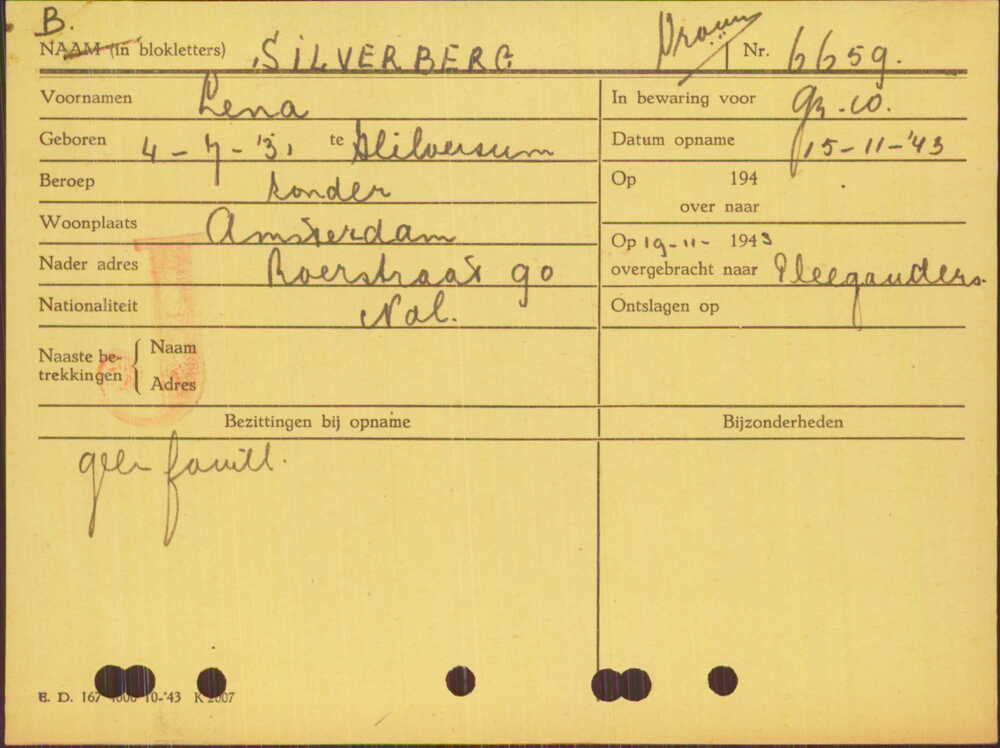 B.
NAAM (in blokletters) SILVERBERG Vrouw Nr. 6659.
Voornamen Lena
In bewaring voor
Geboren 4-7-'31 te Hilversum
Datum opname 15-11-'43
Beroep zonder
Op 194
over naar
Woonplaats Amsterdam
Op 19-11- 1943
Nader adres Roerstraat 90
overgebracht naar Pleegouders.
Nationaliteit Ned.
Ontslagen op
Naaste be-
trekkingen
Naam
Adres
Bezittingen bij opname
Bijzonderheden
geen
E. D. 167 10-'43 K